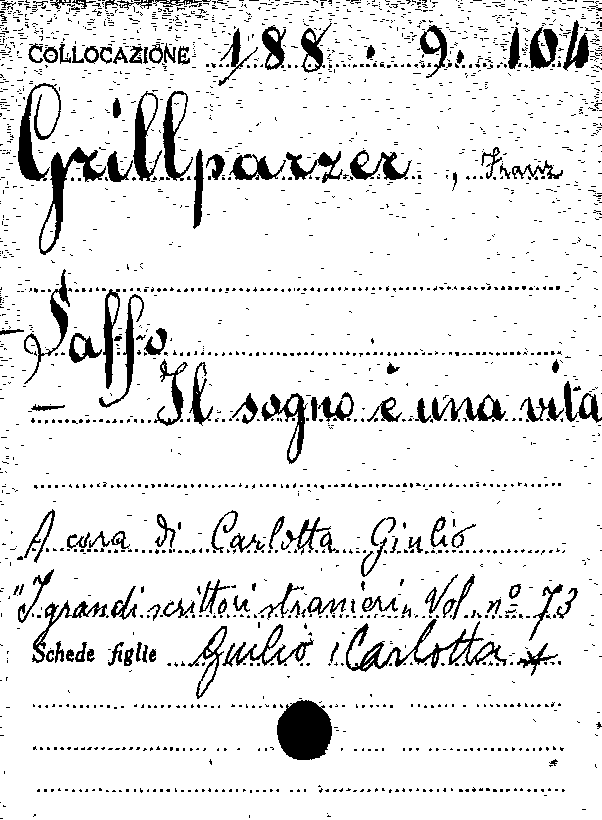 COLLOCAZIONE 188. 9. 104
Grillparzer, Franz
- Saffo
- Il sogno è una vita
A cura di Carlotta Giulio
"I grandi scrittori stranieri" Vol. nº 73
Schede figlie Giulio, Carlotta